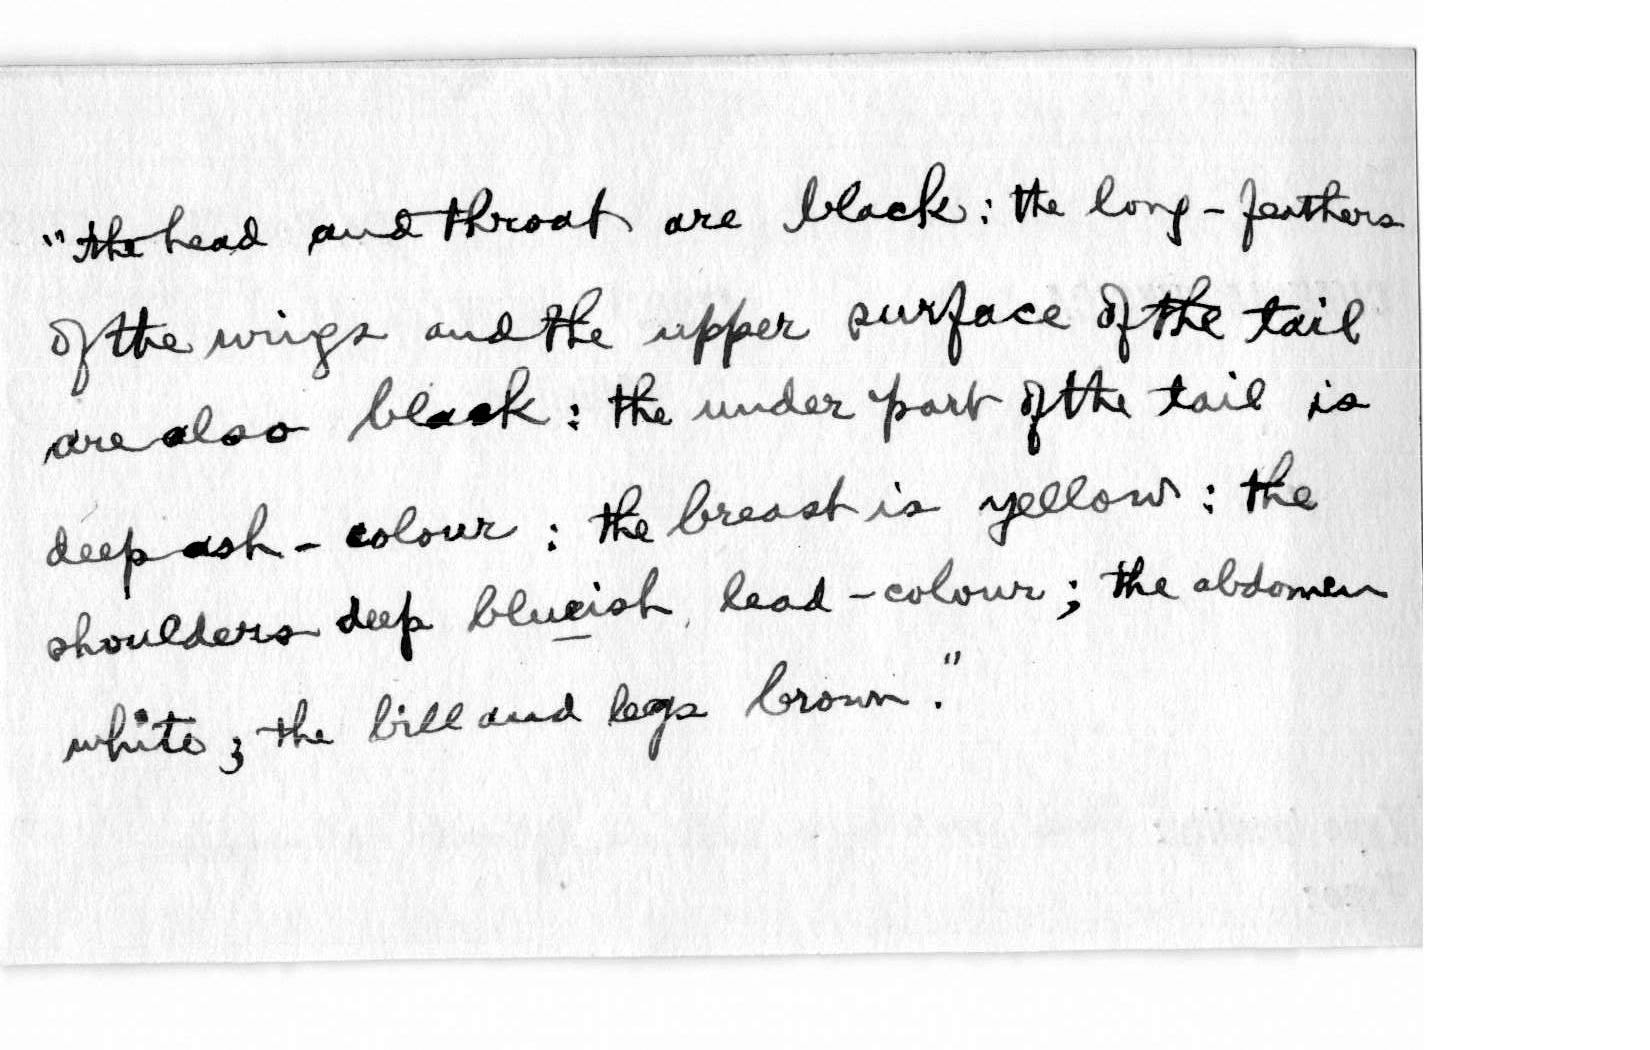 "the head and throat are black: the long-feathers
of the wings and the upper surface of the tail
are also black: the under part of the tail is
deep ash-colour: the breast is yellow: the
shoulders deep blueish lead-colour; the abdomen
white; the bill and legs brown."